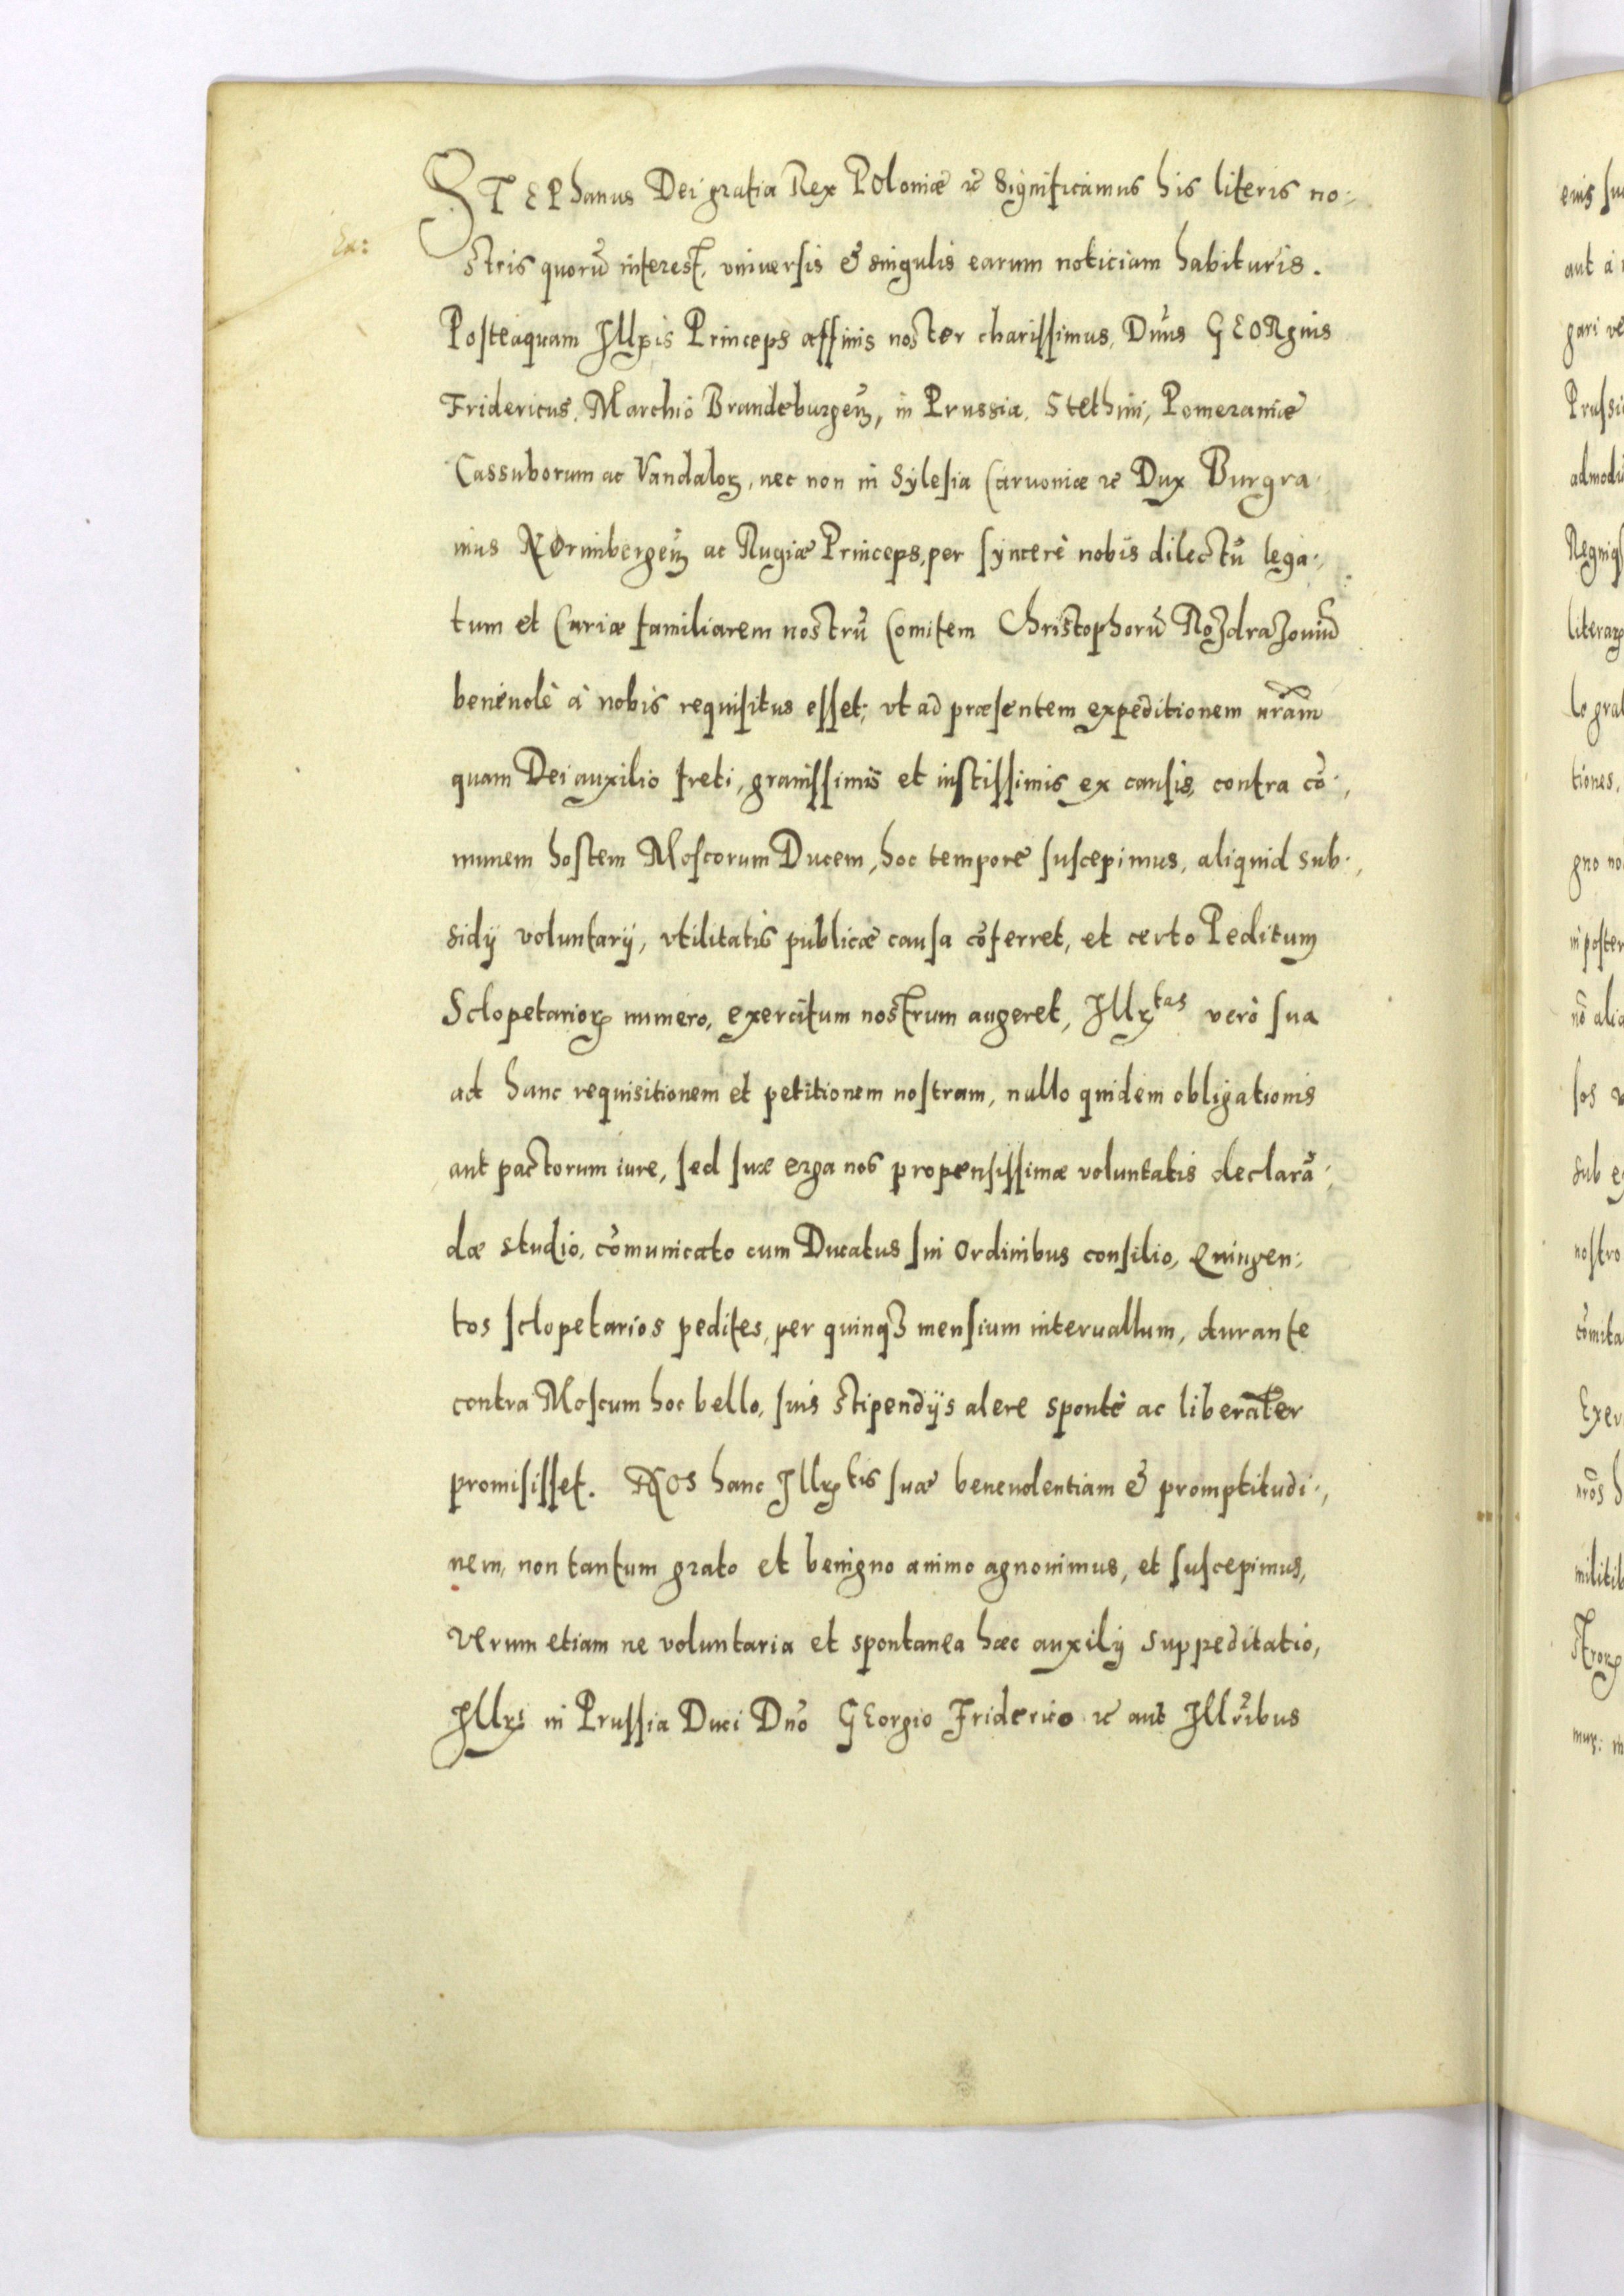 STEPhanus Dei gratia Rex POloniæ ꝛc Significamus his literis no-
Ex:
stris quorū interest, vniuersis & singulis earum noticiam habituris.
Posteaquam Illꝑis Princeps affinis noster charissimus, Dn̄us GEORgius
Fridericus, Marchio Brandeburgeñ, in Prussia, Stethini, Pomeraniæ
Cassuborum ac Vandaloꝝ, nec non in Sylesia Carnoniæ ꝛc Dux Burgra-
uius NOrimbergeñ ac Rugiæ Princeps, per syncerè nobis dilectū lega-
tum et Curiæ familiarem nostrū Comitem Christophorū Rozdrazouiū
beneuolè à nobis requisitus esset; vt ad præsentem expeditionem nr̄am
quam Dei auxilio freti, grauissimis et iustissimis ex causis, contra cō-
munem hostem Moscorum Ducem, hoc tempore suscepimus, aliquid sub-
sidij voluntarij, vtilitatis publicæ causa cōferret, et certo Peditum
Sclopetarioꝝ numero, exercitum nostrum augeret, Illꝑtas verò sua
ad hanc requisitionem et petitionem nostram, nullo quidem obligationis
aut pactorum iure, sed suæ erga nos propensissimæ voluntatis declarā-
dæ studio, cōmunicato cum Ducatus sui Ordinibus consilio, Quingen-
tos sclopetarios pedites, per quinqꝫ mensium interuallum, durante
contra Moscum hoc bello, suis stipendijs alere spontè ac liberaliter
promisisset. NOs hanc Illꝑtis suæ beneuolentiam & promptitudi-
nem, non tantum grato et benigno animo agnouimus, et suscepimus,
Verum etiam ne voluntaria et spontanea hæc auxilij suppeditatio,
Illꝑi in Prussia Duci Dn̄o GEorgio Friderico ꝛc aut Illr̄ibus